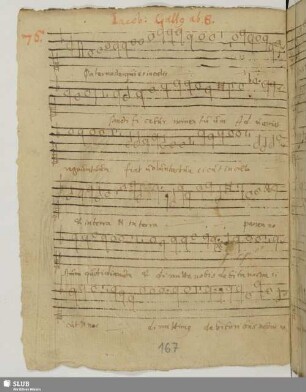 Iacobi Galli ab. 8.
76.
Pater noster qui es in coelis
Sancti fi cetur nomen tu um Ad ueniat
regnum tuum fiat uoluntas tua sicut in coelo
et in terra et in terra panem no
strum quotidianum et dimitte nobis debita nostra si
cut et nos dimittimus debitoribus nostris
167
SLUB